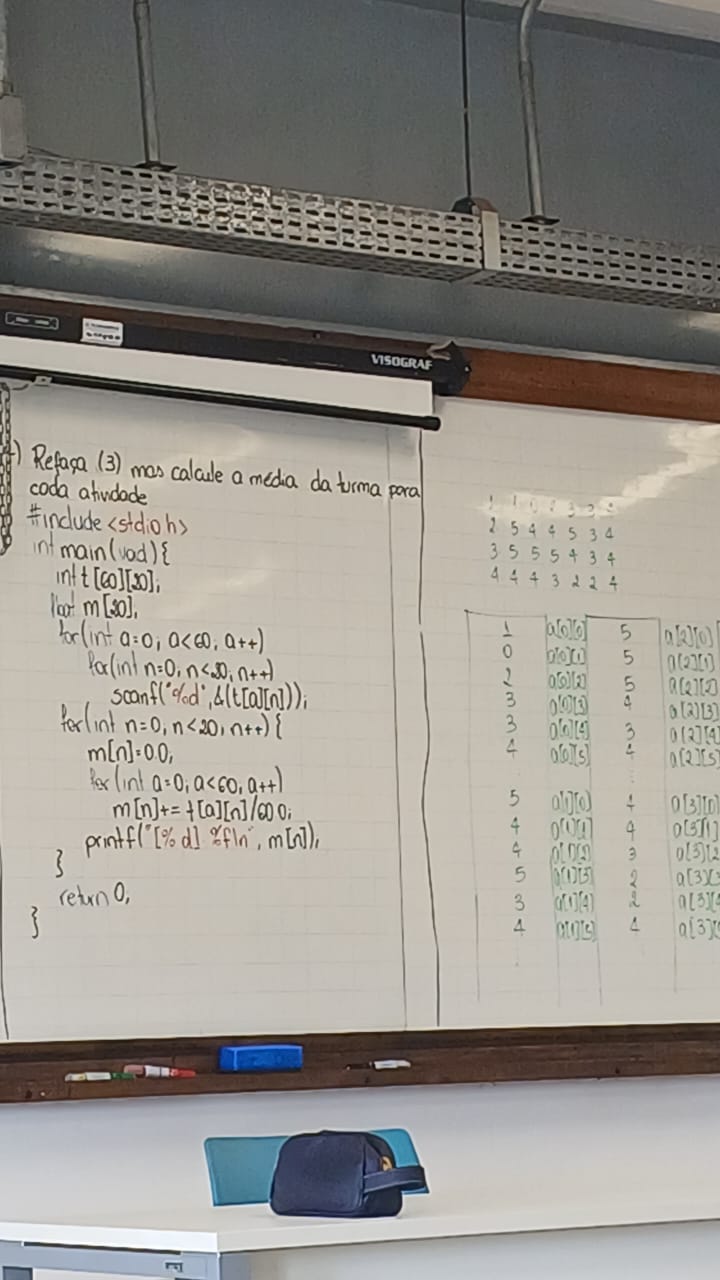 VISOGRAF
) Refaça (3) mas calcule a média da turma para
cada atividade
#include <stdio.h>
int main(void){
int t[60][20];
float m[20];
for(int a=0; a<60; a++)
for(int n=0; n<20; n++)
scanf("%d",&(t[a][n]));
for(int n=0; n<20; n++){
m[n]=0.0;
for(int a=0; a<60; a++)
m[n]+= t[a][n]/60.0;
printf("[%d] %f\n", m[n]);
}
return 0;
}
2 5 4 4 5 3 4
3 5 5 5 4 3 4
4 4 4 3 2 2 4
1 a[0][0] 5 a[2][0]
0 a[0][1] 5 a[2][1]
2 a[0][2] 5 a[2][2]
3 a[0][3] 4 a[2][3]
3 a[0][4] 3 a[2][4]
4 a[0][5] 4 a[2][5]
5 a[1][0] 4 a[3][0]
4 a[1][1] 4 a[3][1]
4 a[1][2] 3 a[3][2
5 a[1][3] 2 a[3][3
3 a[1][4] 2 a[3][4
4 a[1][5] 4 a[3][5